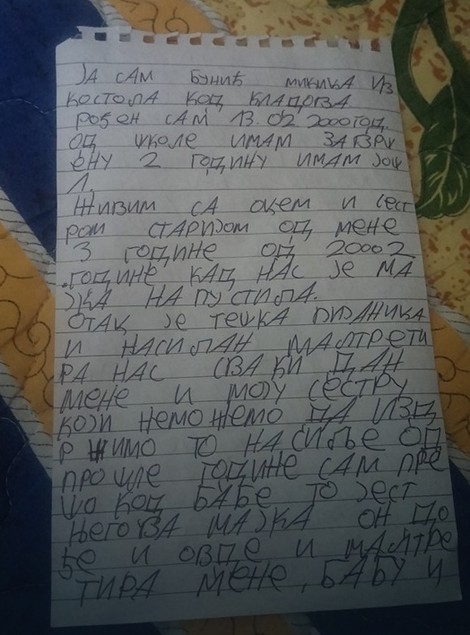 ЈА САМ БУНИЋ МИКИЦА ИЗ
КОСТОЛА КОД КЛАДОВА
РОЂЕН САМ 13.02 2000 ГОД.
ОД ШКОЛЕ ИМАМ ЗАВРШ
ЕНУ 2 ГОДИНУ ИМАМ ЈОШ
1.
ЖИВИМ СА ОЦЕМ И СЕСТ
РОМ СТАРИЈОМ ОД МЕНЕ
3 ГОДИНЕ ОД 20002
ГОДИНЕ КАД НАС ЈЕ МА
ЈКА НАПУСТИЛА.
ОТАЦ ЈЕ ТЕШКА ПИЈАНИЦА
И НАСИЛАН МАЛТРЕТИ
РА НАС СВАКИ ДАН
МЕНЕ И МОЈУ СЕСТРУ
КОЈИ НЕМОЖЕМО ДА ИЗД
РЖИМО ТО НАСИЉЕ ОД
ПРОШЛЕ ГОДИНЕ САМ ПРЕ
ШО КОД БАБЕ ТО ЈЕСТ
ЊЕГОВА МАЈКА ОН ДО
ЂЕ И ОВДЕ И МАЛТРЕ
ТИРА МЕНЕ, БАБУ И